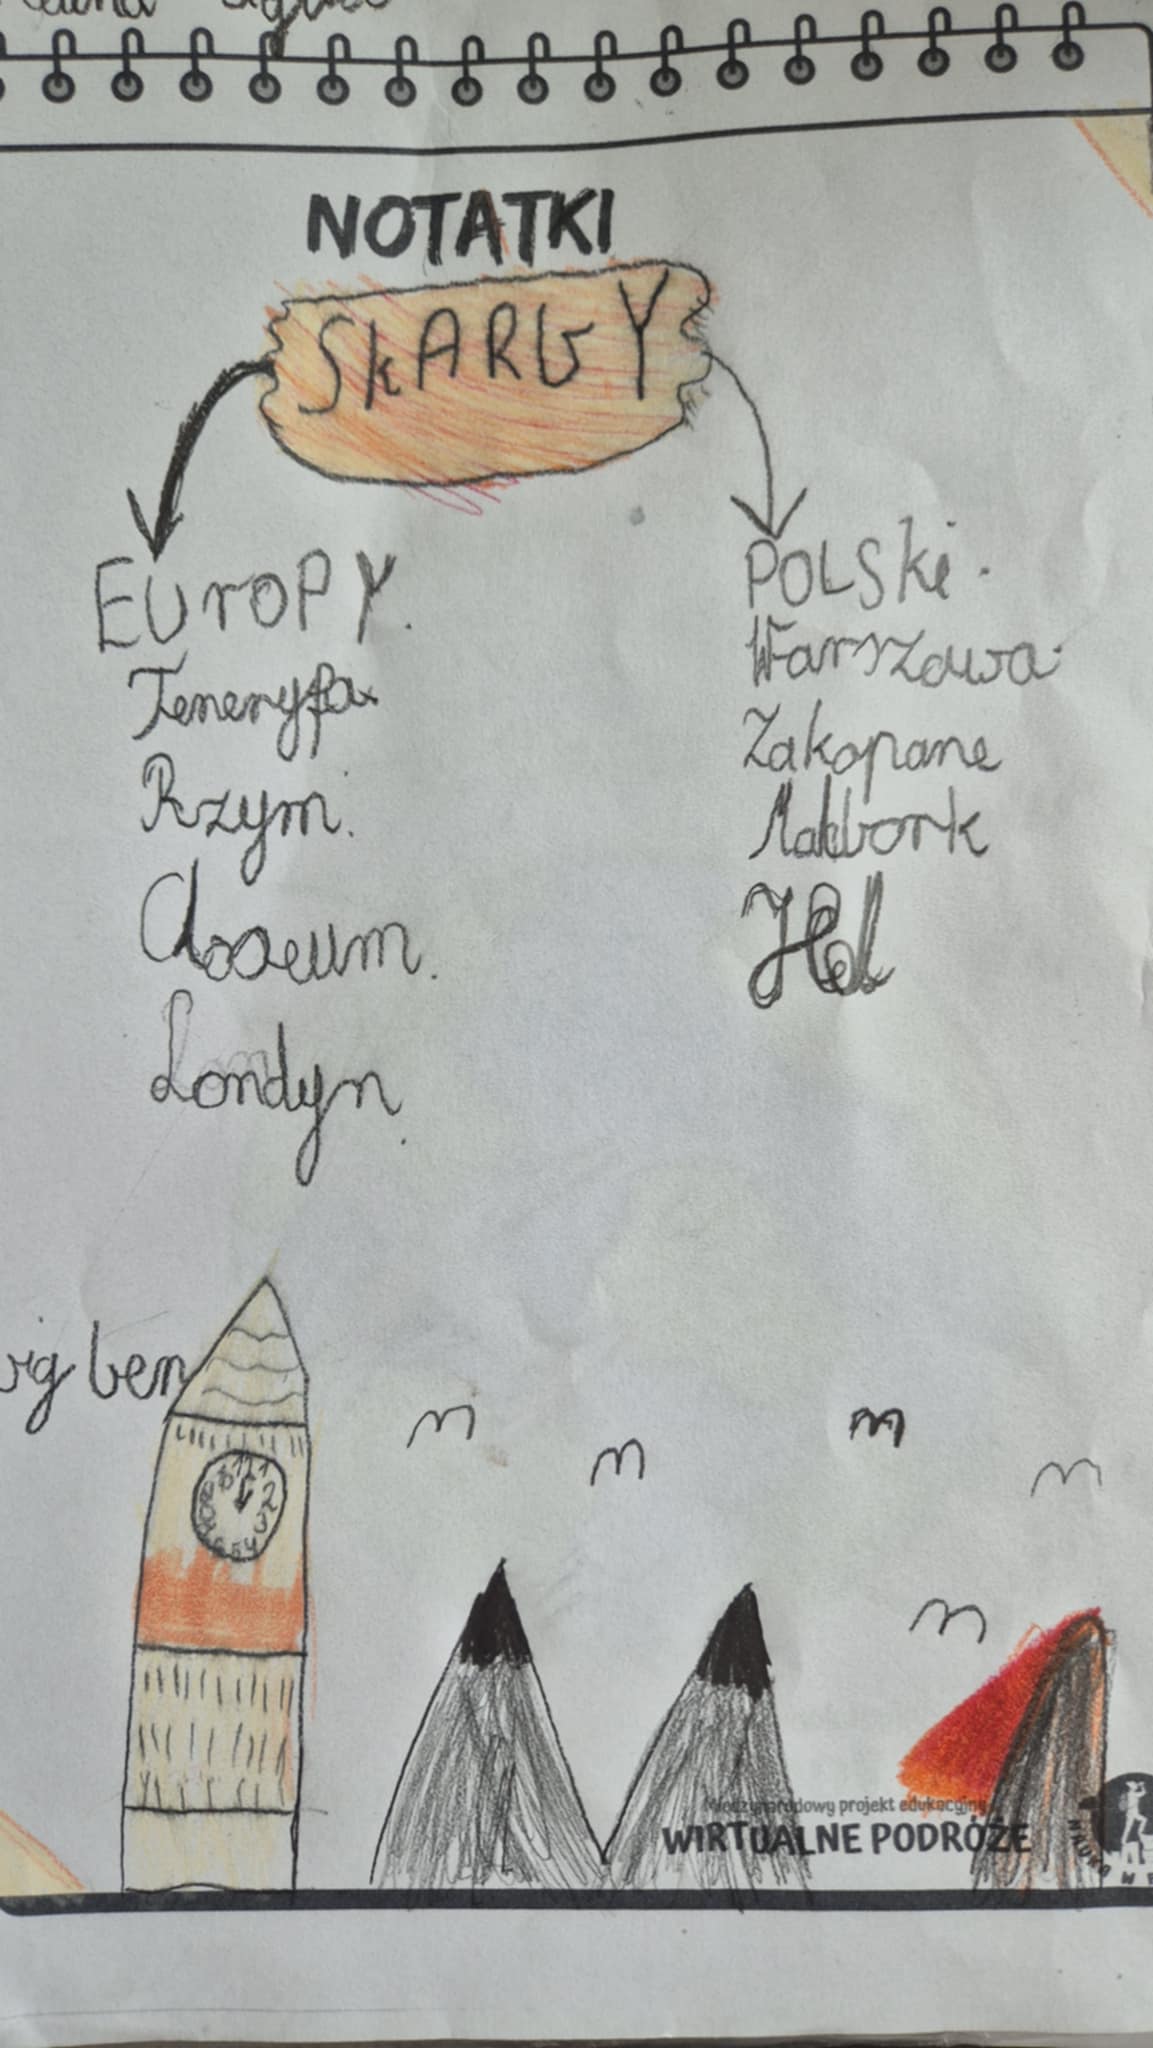 NOTATKI
SkARGY
EUroPY.
Teneryfa
Rzym.
Closeum.
Londyn.
POLSki.
Warszawa.
Zakopane
Malbork
Hel
ig ben
Międzynarodowy projekt edukacyjny
WIRTUALNE PODRÓŻE